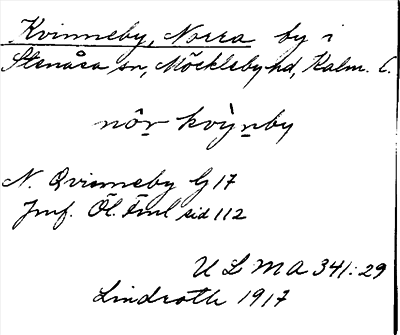 Kvinneby, Norra by i
Stenåsa sn, Möckleby hd, Kalm. l.
nôr̲ kvỳn̲by
N. Qvinneby G 17
Jmf. Öl. Fml sid 112
U L M A 341:29
Lindroth 1917